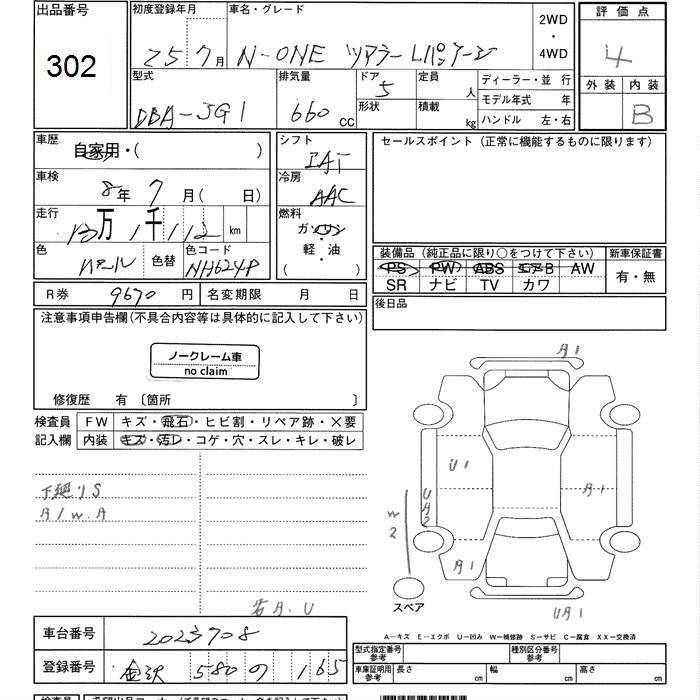 出品番号 302
初度登録年月 25 7月
車名・グレード N-ONE ツアラーLパッケージ
2WD・4WD
型式 DBA-JG1
排気量 660 CC
ドア 5
形状
定員 人
積載 kg
ディーラー・並 行
モデル年式 年
ハンドル 左・右
評価点 4
外装 内装 B
車歴 自家用・( )
車検 8年 7月( 日)
走行 万 千 km
色 パール 色替
色コード NH624P
シフト IAT
冷房 AAC
燃料 ガソリン
軽・油
( )
セールスポイント (正常に機能するものに限ります)
装備品 (純正品に限り○をつけて下さい)
PS PW ABS エアB AW
SR ナビ TV カワ
新車保証書
有・無
R券 9670 円 名変期限 月 日
後日品
注意事項申告欄(不具合内容等は具体的に記入して下さい)
ノークレーム車
no claim
修復歴 有 〔箇所 〕
検査員 FW キズ・飛石・ヒビ割・リペア跡・×要
記入欄 内装 キズ・汚レ・コゲ・穴・スレ・キレ・破レ
下廻りS
A/W.A
若A.U
A1
U1
A1
UA2
W2
A1
UA1
スペア
A―キズ E―エクボ U―凹み W―補修跡 S―サビ C―腐食 XX―交換済
車台番号 2023708
登録番号 金沢 580 の 165
型式指定番号 参考
種別区分番号 参考
車庫証明用 参考 長さ cm 幅 cm 高さ cm